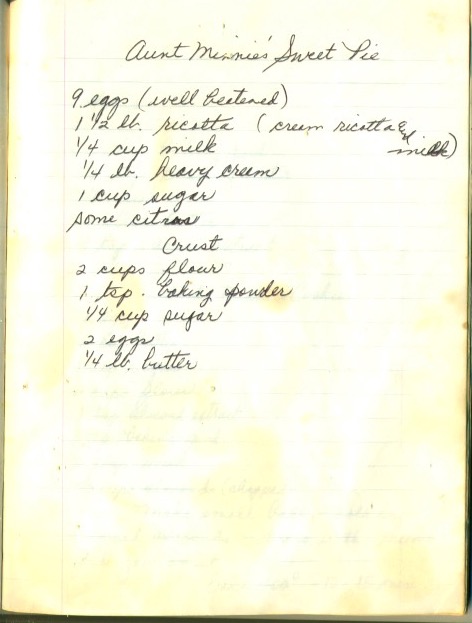 Aunt Minnie's Sweet Pie
9 eggs (well beatened)
1 1/2 lb. ricotta (cream ricotta &
milk)
1/4 cup milk
1/4 lb. heavy cream
1 cup sugar
some citras
Crust
2 cups flour
1 tsp. baking powder
1/4 cup sugar
2 eggs
1/4 lb. butter